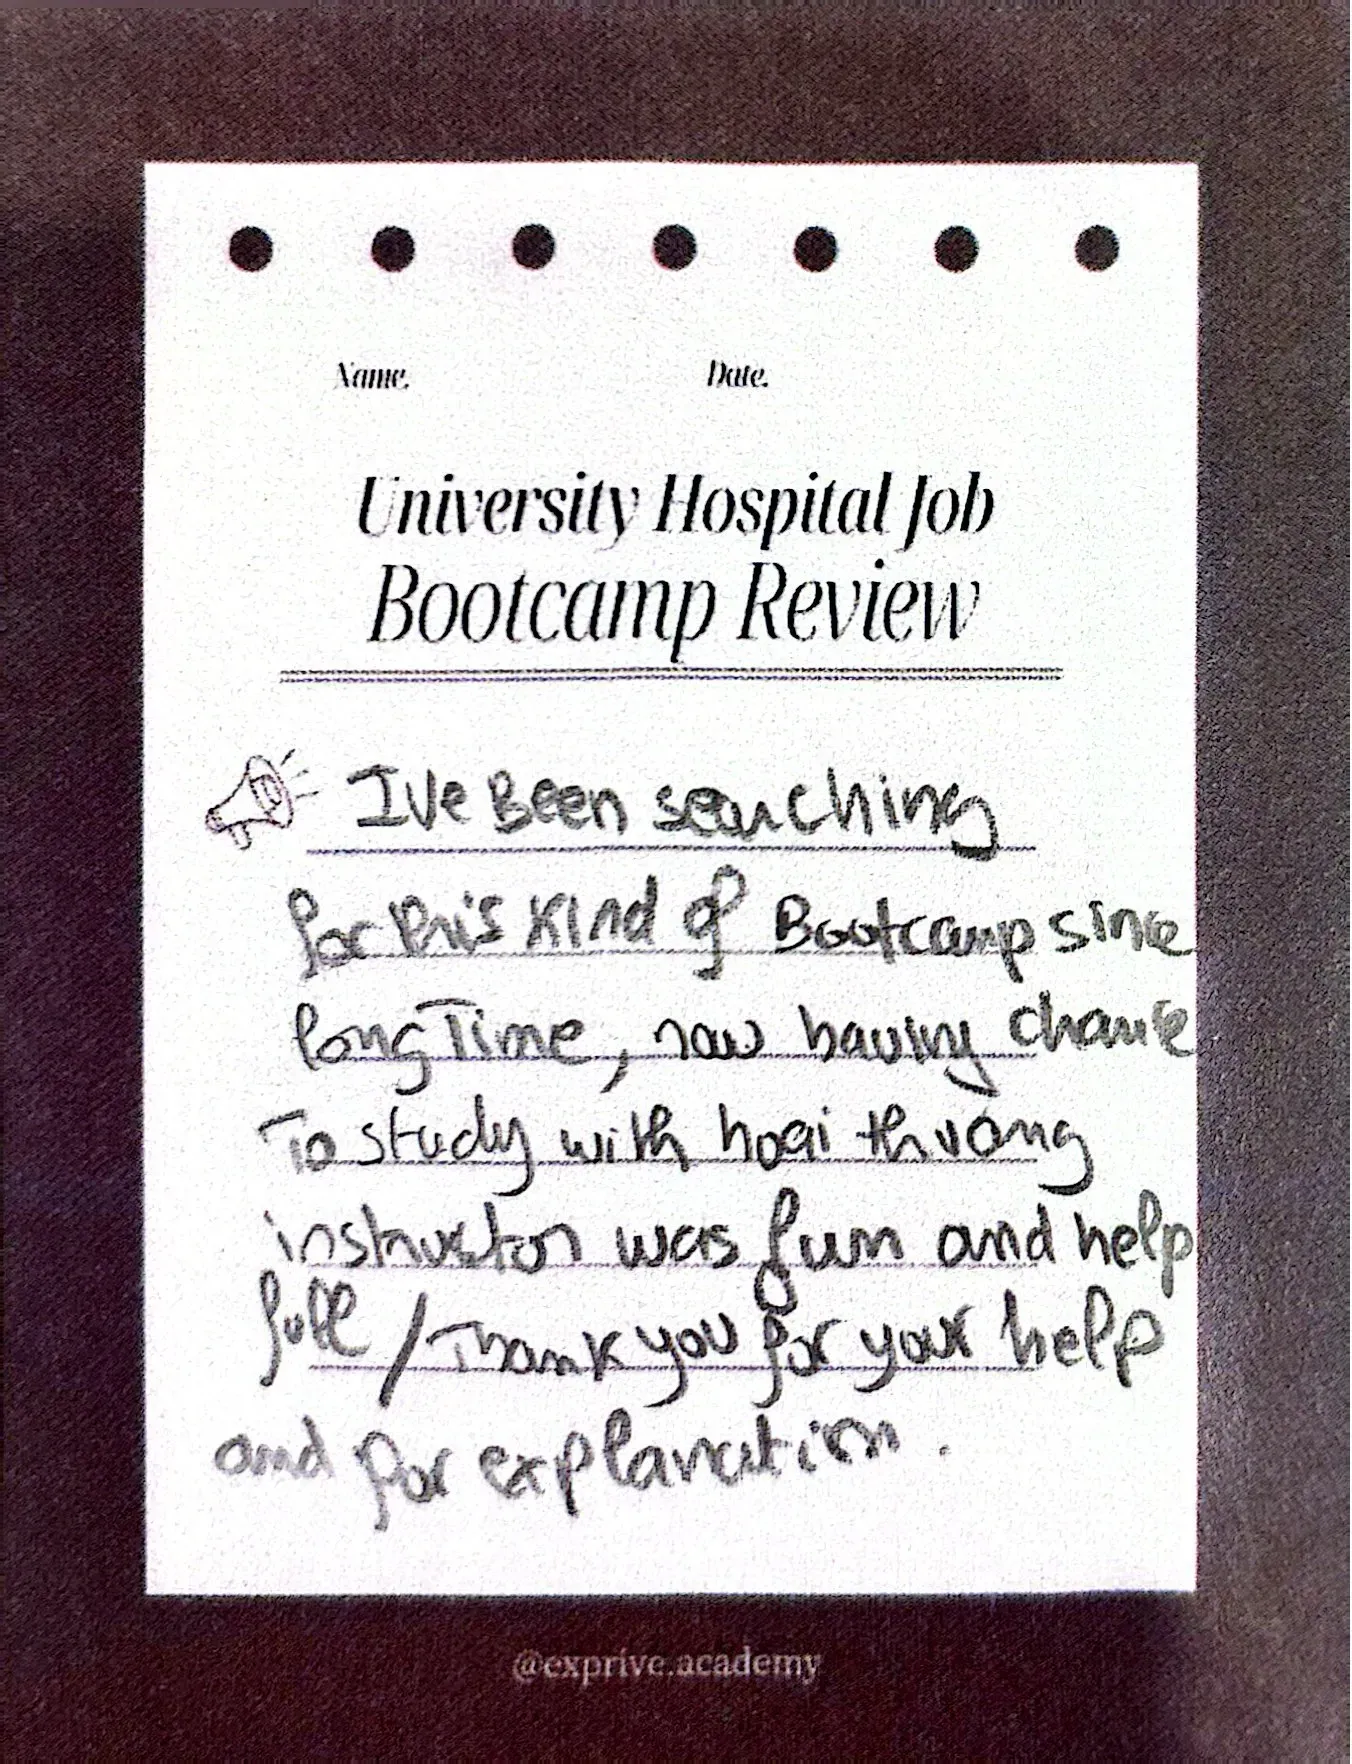 Name. Date.
University Hospital Job
Bootcamp Review
I've Been searching
for this kind of Bootcamp since
long Time, now having chance
To study with hoai thvong
instructor was fum and help
full / Thank you for your help
and for explanation .
@exprive.academy